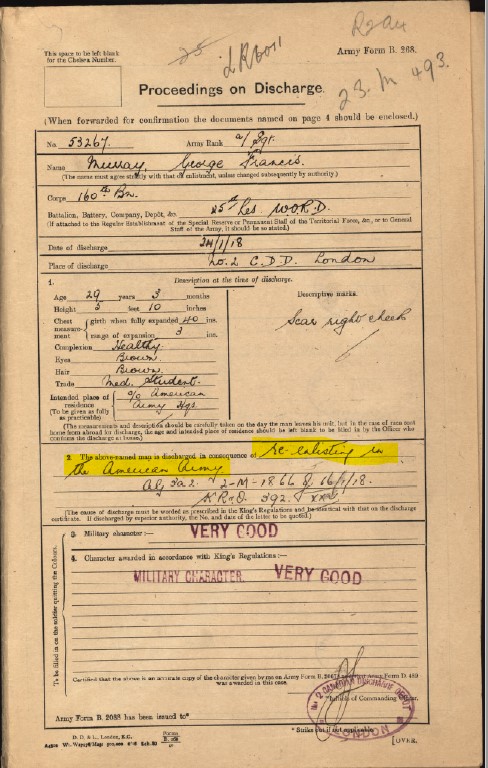 This space to be left blank
for the Chelsea Number.
25
LR6011
R2a4
Army Form B. 268.
23. M 493.
Proceedings on Discharge.
(When forwarded for confirmation the documents named on page 4 should be enclosed.)
No. 53267. Army Rank a/ Sgt.
Name Murray, George Francis.
(The name must agree strictly with that on enlistment, unless changed subsequently by authority.)
Corps 160th Bn.
Battalion, Battery, Company, Depôt, &c. 25th Res W.O.R.D.
(If attached to the Regular Establishment of the Special Reserve or Permanent Staff of the Territorial Force, &c., or to General
Staff of the Army, it should be so stated.)
Date of discharge 24/1/18
Place of discharge No. 2 C.D.D. London
1. Description at the time of discharge.
Age 29 years 3 months
Height 5 feet 10 inches
Chest measurement girth when fully expanded 40 ins.
range of expansion 3 ins.
Complexion Healthy
Eyes Brown.
Hair Brown.
Trade Med. Student.
Intended place of residence c/o American
Army Hqs.
(To be given as fully
as practicable)
Descriptive marks.
Scar right cheek
(The measurements and description should be carefully taken on the day the man leaves his unit, but in the case of men sent
home from abroad for discharge, the age and intended place of residence should be left blank to be filled in by the Officer who
confirms the discharge at home.)
2. The above-named man is discharged in consequence of re-enlisting in
the American Army
2-M-1866 16/1/18.
K.R. & O. 392.
(The cause of discharge must be worded as prescribed in the King's Regulations and be identical with that on the discharge
certificate. If discharged by superior authority, the No. and date of the letter to be quoted.)
To be filled in on the soldier quitting the Colours.
3. Military character:— VERY GOOD
4. Character awarded in accordance with King's Regulations:—
MILITARY CHARACTER. VERY GOOD
Certified that the above is an accurate copy of the character given by me on Army Form B. Army Form D. 489
was awarded in this case.
Initials of Commanding Officer.
No 2 CANADIAN DISCHARGE DEPOT
LONDON
Army Form B. 2088 has been issued to*
* Strike out if not applicable.
D. D. & L., London, E.C.
Forms
B. 268
[OVER.